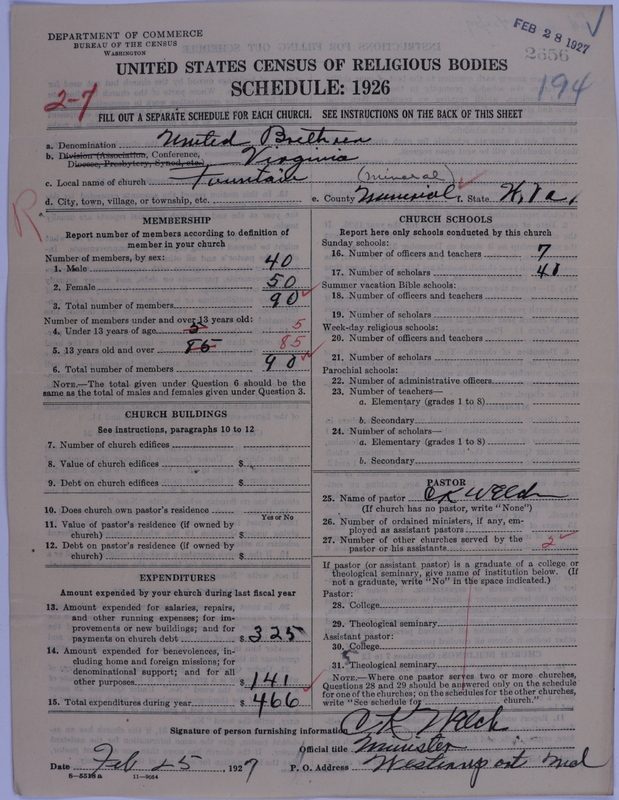 FEB 28 1927
2656
194
DEPARTMENT OF COMMERCE
BUREAU OF THE CENSUS
WASHINGTON
UNITED STATES CENSUS OF RELIGIOUS BODIES
SCHEDULE: 1926
2-7
FILL OUT A SEPARATE SCHEDULE FOR EACH CHURCH. SEE INSTRUCTIONS ON THE BACK OF THIS SHEET
a. Denomination United Brethren
b. Division (Association, Conference, Diocese, Presbytery, Synod, etc.) Virginia
c. Local name of church Fountain (Mineral)
d. City, town, village, or township, etc. e. County Mineral f. State W. Va.
R
MEMBERSHIP
Report number of members according to definition of member in your church
Number of members, by sex:
1. Male 40
2. Female 50
3. Total number of members 90
Number of members under and over 13 years old:
4. Under 13 years of age 5 5
5. 13 years old and over 85 85
6. Total number of members 90
NOTE.—The total given under Question 6 should be the same as the total of males and females given under Question 3.
CHURCH BUILDINGS
See instructions, paragraphs 10 to 12
7. Number of church edifices
8. Value of church edifices $
9. Debt on church edifices $
10. Does church own pastor's residence
Yes or No
11. Value of pastor's residence (if owned by church) $
12. Debt on pastor's residence (if owned by church) $
EXPENDITURES
Amount expended by your church during last fiscal year
13. Amount expended for salaries, repairs, and other running expenses; for improvements or new buildings; and for payments on church debt $ 325
14. Amount expended for benevolences, including home and foreign missions; for denominational support; and for all other purposes $ 141
15. Total expenditures during year $ 466
CHURCH SCHOOLS
Report here only schools conducted by this church
Sunday schools:
16. Number of officers and teachers 7
17. Number of scholars 41
Summer vacation Bible schools:
18. Number of officers and teachers
19. Number of scholars
Week-day religious schools:
20. Number of officers and teachers
21. Number of scholars
Parochial schools:
22. Number of administrative officers
23. Number of teachers—
a. Elementary (grades 1 to 8)
b. Secondary
24. Number of scholars—
a. Elementary (grades 1 to 8)
b. Secondary
PASTOR
25. Name of pastor C K Welch
(If church has no pastor, write "None")
26. Number of ordained ministers, if any, employed as assistant pastors
27. Number of other churches served by the pastor or his assistants 2
If pastor (or assistant pastor) is a graduate of a college or theological seminary, give name of institution below. (If not a graduate, write "No" in the space indicated.)
Pastor:
28. College
29. Theological seminary
Assistant pastor:
30. College
31. Theological seminary
NOTE.—Where one pastor serves two or more churches, Questions 28 and 29 should be answered only on the schedule for one of the churches; on the schedules for the other churches, write "See schedule for church."
Signature of person furnishing information C K Welch
Official title Minister
Date Feb 25, 1927 P. O. Address Westernport Md
8—5518a 11—9034